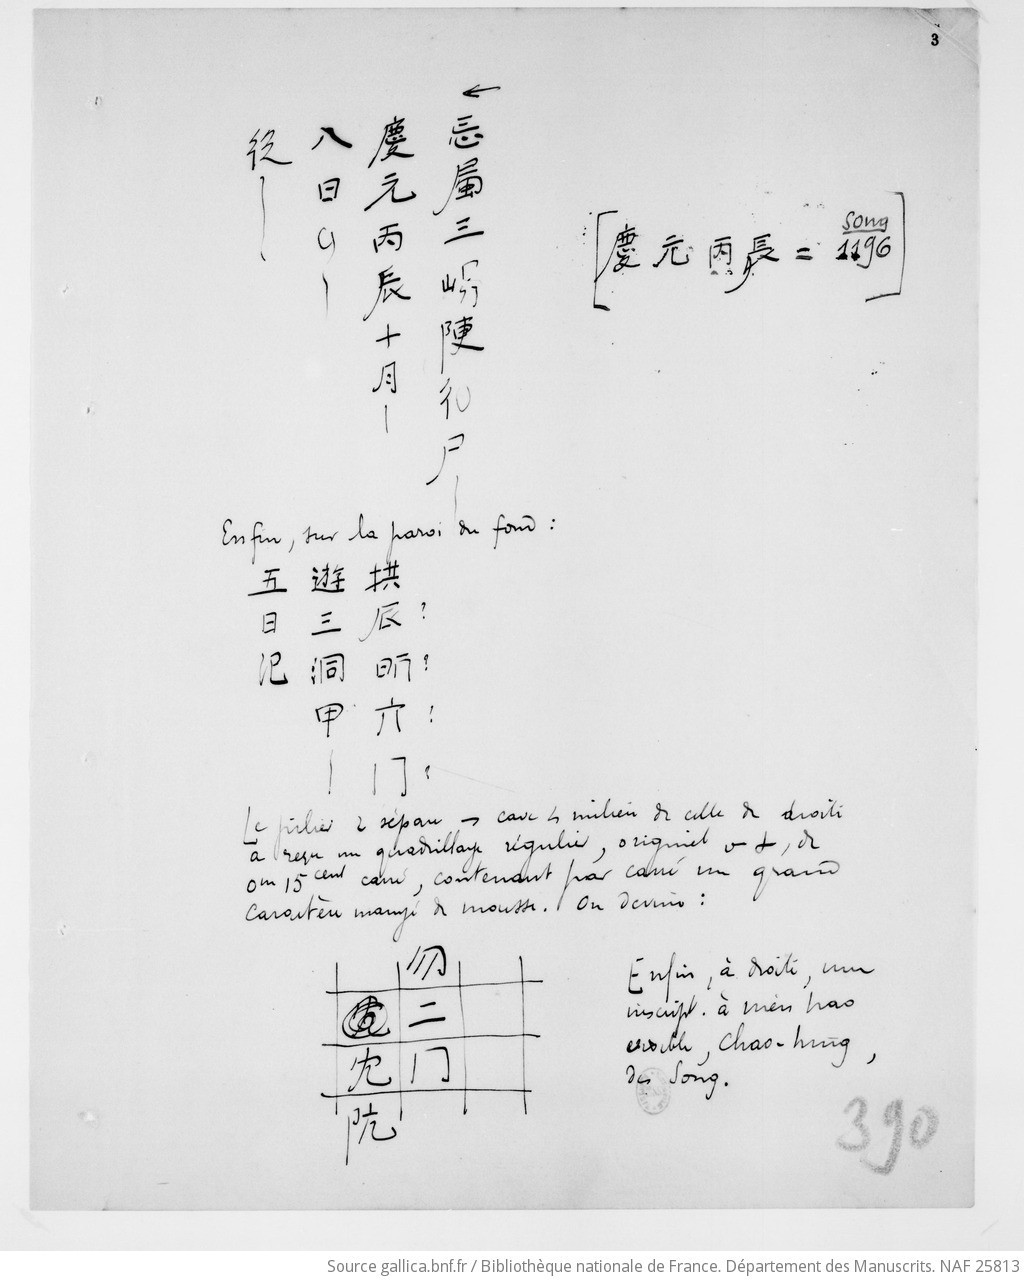 3
←
忘属三嶹陳礼尸
慶元丙辰十月
八日
從
[慶元丙長 = Song 1196]
Enfin, sur la paroi du fond :
拱辰?昕?六?门?
遊三洞甲
五日汜
Le pilier qui sépare la cave du milieu de celle de droite
a reçu un quadrillage régulier, originel, de
0m 15 cent carré, contenant par carré un grand
caractère mangé de mousse. On devine :
勿
二
冂
阬
Enfin, à droite, une
inscript. à nien hao
visible, Chao-hing,
des Song.
390
Source gallica.bnf.fr / Bibliothèque nationale de France. Département des Manuscrits. NAF 25813